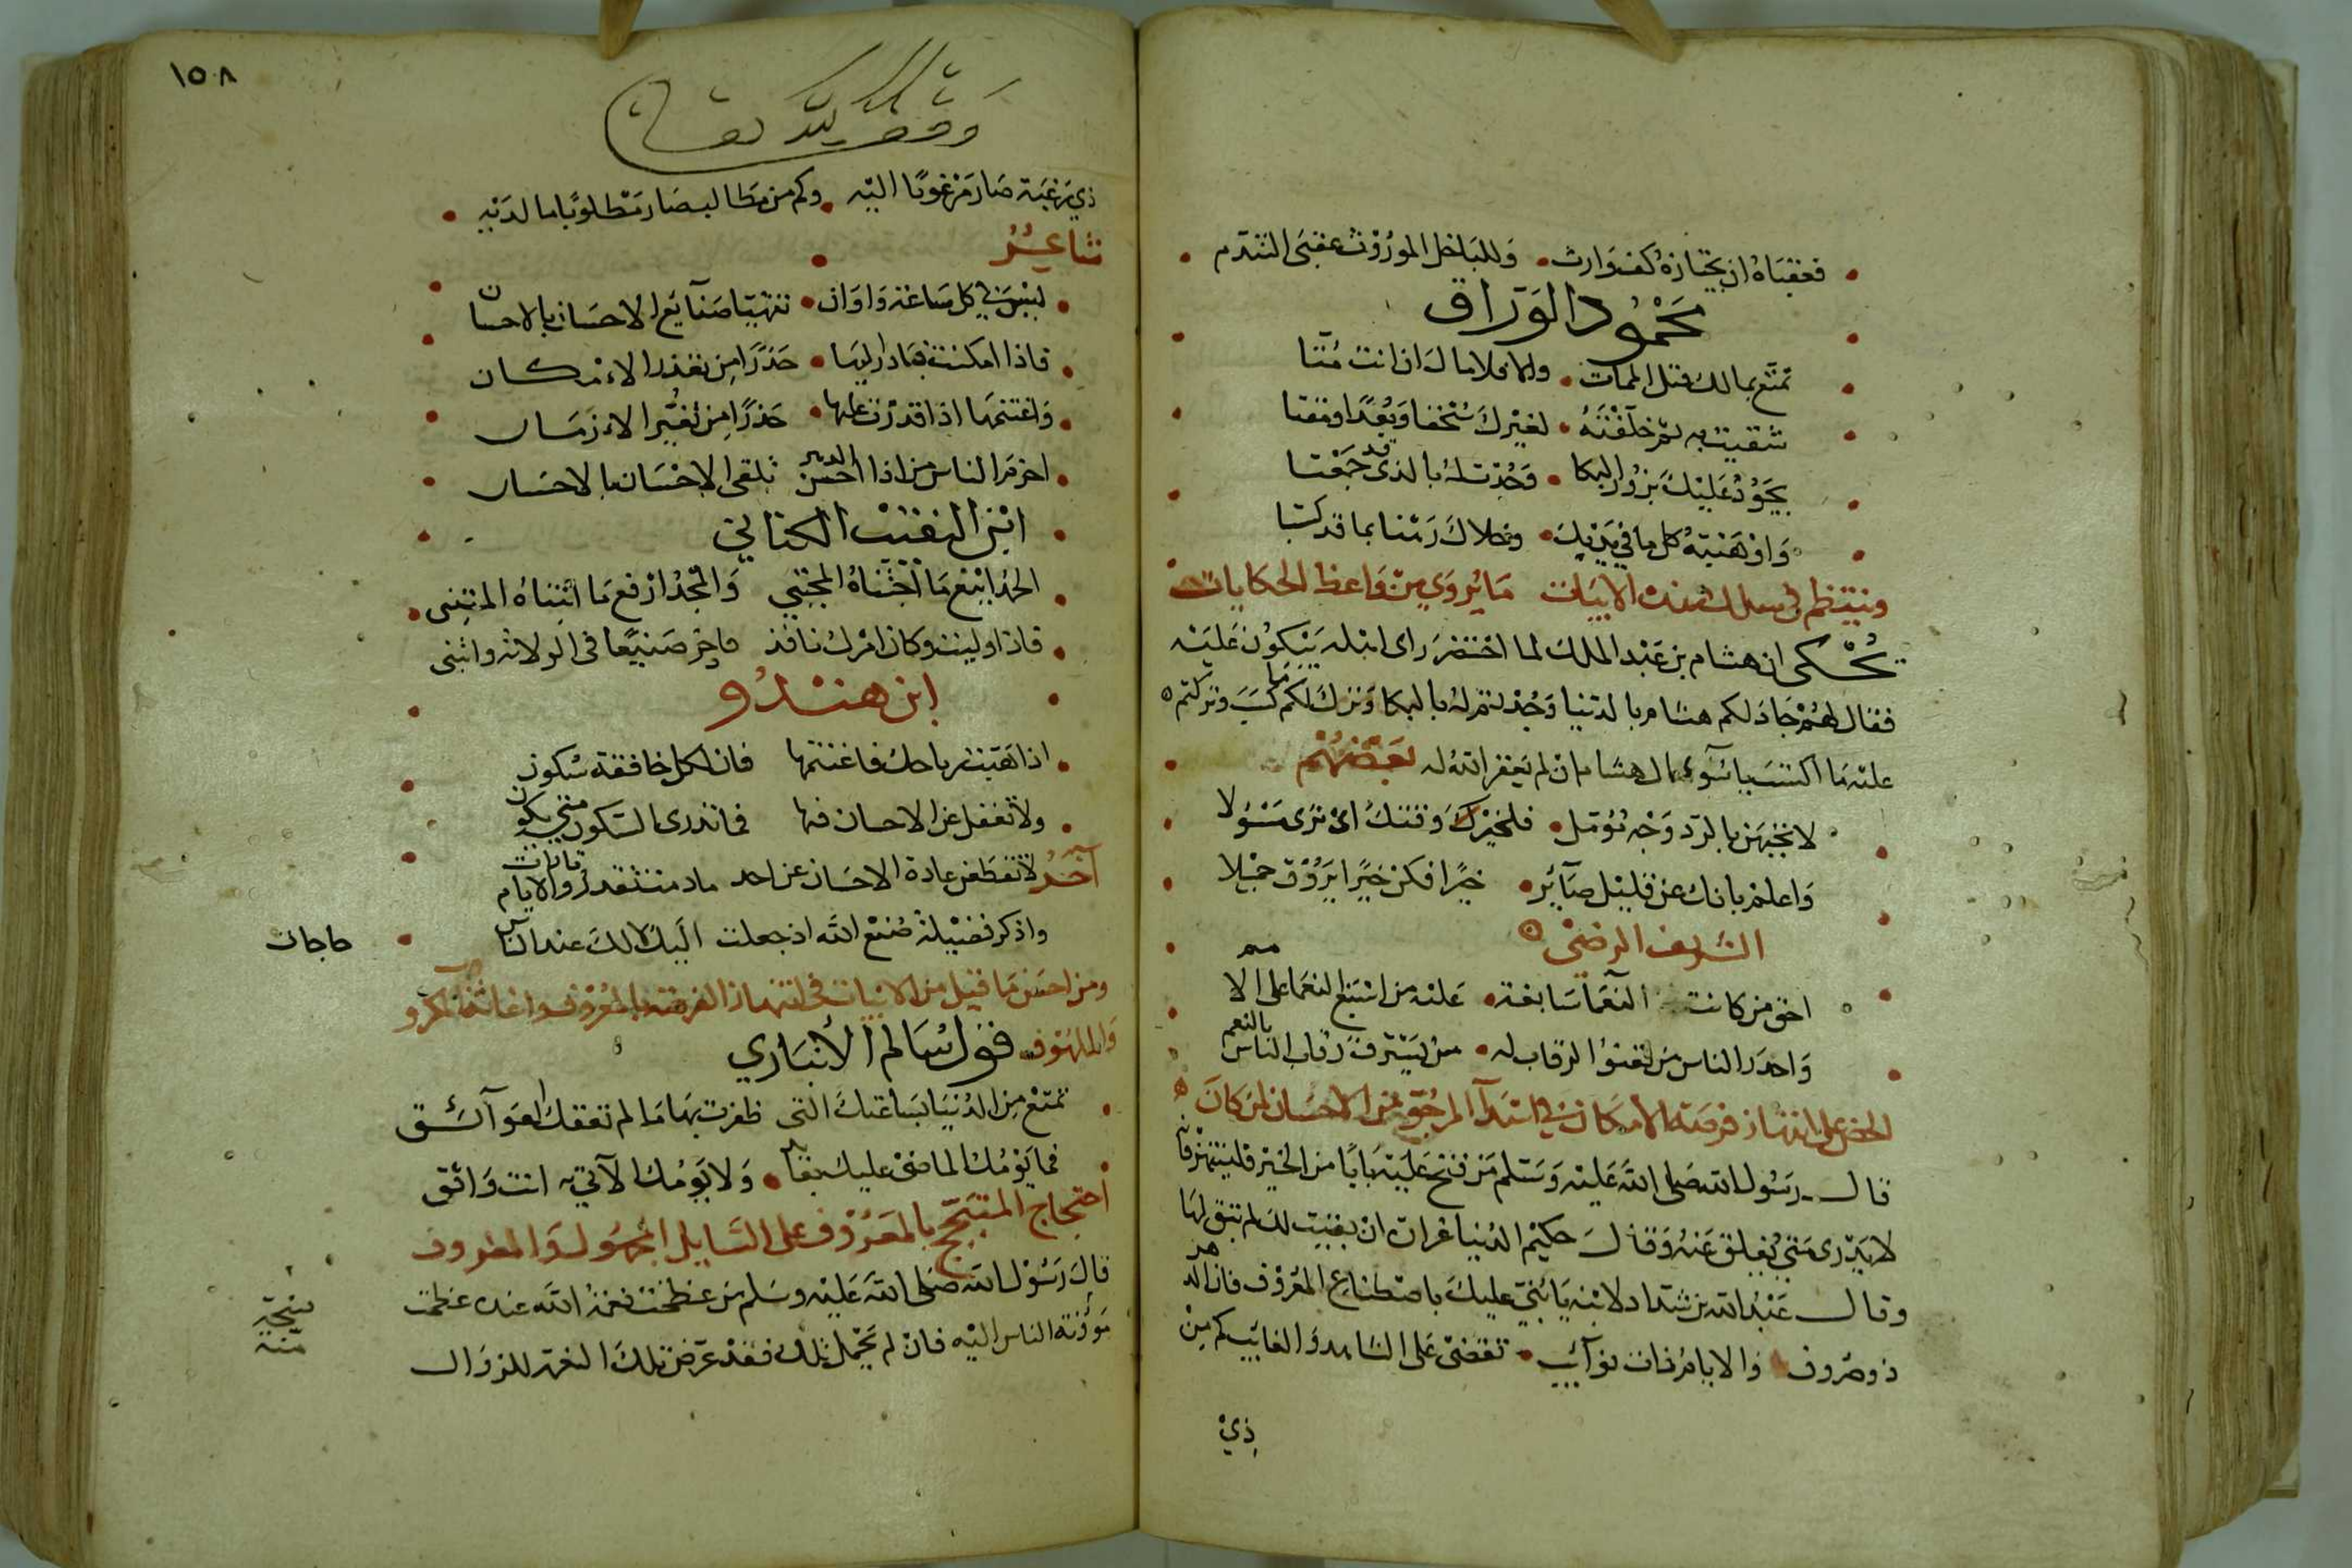 فعقباه ان يحتازه كف وارث • وللباخل الموروث عقبى التندم
محمود الوراق
تمتع بمالك قبل الممات • والا فلا مال ان انت متا
شقيت به ثم خلفته • لغيرك سحقا وبعدا ومقتا
يجود عليك بزور البكا • وجدت له بالذى قد جمعتا
واوهبته كل ما في يديك • وخلاك رهنا بما قد كسبتا
وينتظم في سلك هذه الابيات ما يروي من واعظ الحكايات
يحكى ان هشام بن عبد الملك لما احتضر راى اهله يبكون عليه
فقال لهم جاد لكم هشام بالدنيا وجدتم له بالبكا وترك لكم ما كسب وتركتم
عليه ما اكتسب يا سوء حال هشام ان لم يغفر الله له بعضهم
لا تجبهن بالرد وجه مؤمل • فلخير وقتك ان ترى مسؤلا
واعلم بانك عن قليل صائر • خبرا فكن خبرا يروق جميلا
الشريف الرضى
احق من كانت النعما سابغة • عليه من اسبغ النعما على الامم
واحدر الناس من تعنوا الرقاب له • من يسترق رقاب الناس بالنعم
الحض على انتهاز فرصة الامكان في ابتدآ المرجو من الاحسان لمن كان
قال رسول الله صلى الله عليه وسلم من فتح عليه بابا من الخير فلينتهز فانه
لا يدرى متى يغلق عنه وقال حكيم الدنيا غرات ان بقيت لك لم تبق لها
وقال عبد الله بن شداد لابنه يا بني عليك باصطناع المعروف فان الدهر
ذو صروف والايام ذات نوآئب • تقضى على الشاهد والغائب كم من
ذي
١٥٨
وقف لله تعالى
ذي رغبة صار مرغوبا اليه • وكم من طالب صار مطلوبا ما لديه
شاعر
ليس في كل ساعة واوان • تتهيا صنآيع الاحسان بالاحسان
فاذا امكنت فبادر اليها • حذرا من تعذر الامكان
واغتنمها اذا قدرت عليها • حذرا من تغير الازمان
احزم الناس من اذا احسن الدهر تلقى الاحسان بالاحسان
ابن النقيب الكتاني
الحمد اينع ما اجتناه المجتبي والمجد ارفع ما ابتناه المبتنى
فاذا وليت وكان امرك نافذ فاخر صنيعا في الولاية وابتنى
ابن هندو
اذا هبت رياحك فاغتنمها فان لكل خافقة سكون
ولا تغفل عن الاحسان فيها فما تدرى السكون متى يكون
آخر لا تقطعن عادة الاحسان عن احد ما دمت تقدر والايام تارات
واذكر فضيلة صنع الله اذ جعلت اليك لا لك عند الناس
حاجات
ومن احسن ما قيل من الابيات في انتهاز الفرصة بالمعروف واغاثة المكرو
والملهوف قول سالم الأنباري
تمتع من الدنيا بساعتك التى ظفرت بها ما لم تعقك العوآئق
فما يومك الماضى عليك بعائد • ولا يومك الآتي به انت واثق
احتجاج المتبجح بالمعروف على السايل المجهول والمعروف
قال رسول الله صلى الله عليه وسلم من عظمت نعمة الله عنده عظمت
مؤنة الناس اليه فان لم يحمل تلك فقد عرض تلك النعمة للزوال